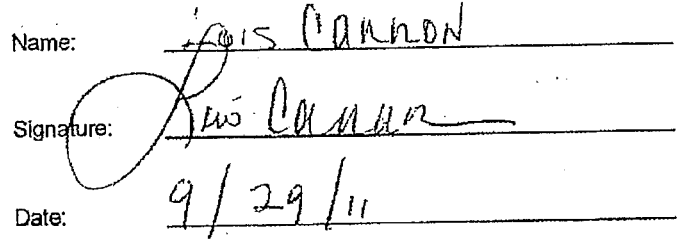 Name: Lois Cannon
Signature: Lois Cannon
Date: 9/29/11